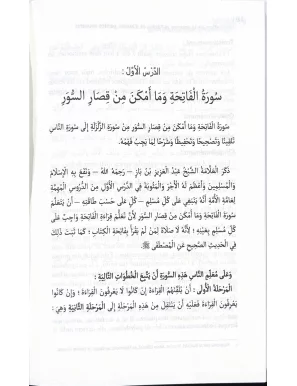 الدَّرْسُ الْأَوَّلُ :
سُورَةُ الْفَاتِحَةِ وَمَا أَمْكَنَ مِنْ قِصَارِ السُّوَرِ
سُورَةُ الْفَاتِحَةِ وَمَا أَمْكَنَ مِنْ قِصَارِ السُّوَرِ مِنْ سُورَةِ الزَّلْزَلَةِ إِلَى سُورَةِ النَّاسِ
تَلْقِينًا وَتَصْحِيحًا وَتَحْفِيظًا وَشَرْحًا لِمَا يَجِبُ فَهْمُهُ.
ذَكَرَ الْعَلَّامَةُ الشَّيْخُ عَبْدُ الْعَزِيزِ بْنُ بَازٍ – رَحِمَهُ اللهُ – وَنَفَعَ بِهِ الْإِسْلَامَ
وَالْمُسْلِمِينَ وَأَعْظَمَ لَهُ الْأَجْرَ وَالْمَثُوبَةَ فِي الدَّرْسِ الْأَوَّلِ مِنَ الدُّرُوسِ الْمُهِمَّةِ
لِعَامَّةِ الْأُمَّةِ أَنَّهُ يَنْبَغِي عَلَى كُلِّ مُسْلِمٍ – كُلٌّ عَلَى حَسَبِ طَاقَتِهِ – أَنْ يَتَعَلَّمَ
الْفَاتِحَةَ وَمَا أَمْكَنَ مِنْ قِصَارِ السُّوَرِ لِأَنَّ تَعَلُّمَ قِرَاءَةِ الْفَاتِحَةِ وَاجِبٌ عَلَى
كُلِّ مُسْلِمٍ بِعَيْنِهِ ؛ لِأَنَّهُ لَا صَلَاةَ لِمَنْ لَمْ يَقْرَأْ بِفَاتِحَةِ الْكِتَابِ ؛ كَمَا ثَبَتَ ذَلِكَ
فِي الْحَدِيثِ الصَّحِيحِ عَنِ الْمُصْطَفَى ﷺ.
وَعَلَى مُعَلِّمِ النَّاسِ هَذِهِ السُّورَةَ أَنْ يَتَّبِعَ الْخُطُوَاتِ التَّالِيَةَ :
الْمَرْحَلَةُ الْأُولَى : أَنْ يُلَقِّنَهُمُ الْقِرَاءَةَ إِنْ كَانُوا لَا يَعْرِفُونَ الْقِرَاءَةَ ؛ وَإِنْ كَانُوا
يَعْرِفُونَ الْقِرَاءَةَ فَعَلَيْهِ أَنْ يَنْتَقِلَ مِنْ هَذِهِ الْمَرْحَلَةِ إِلَى الْمَرْحَلَةِ الثَّانِيَةِ وَهِيَ :